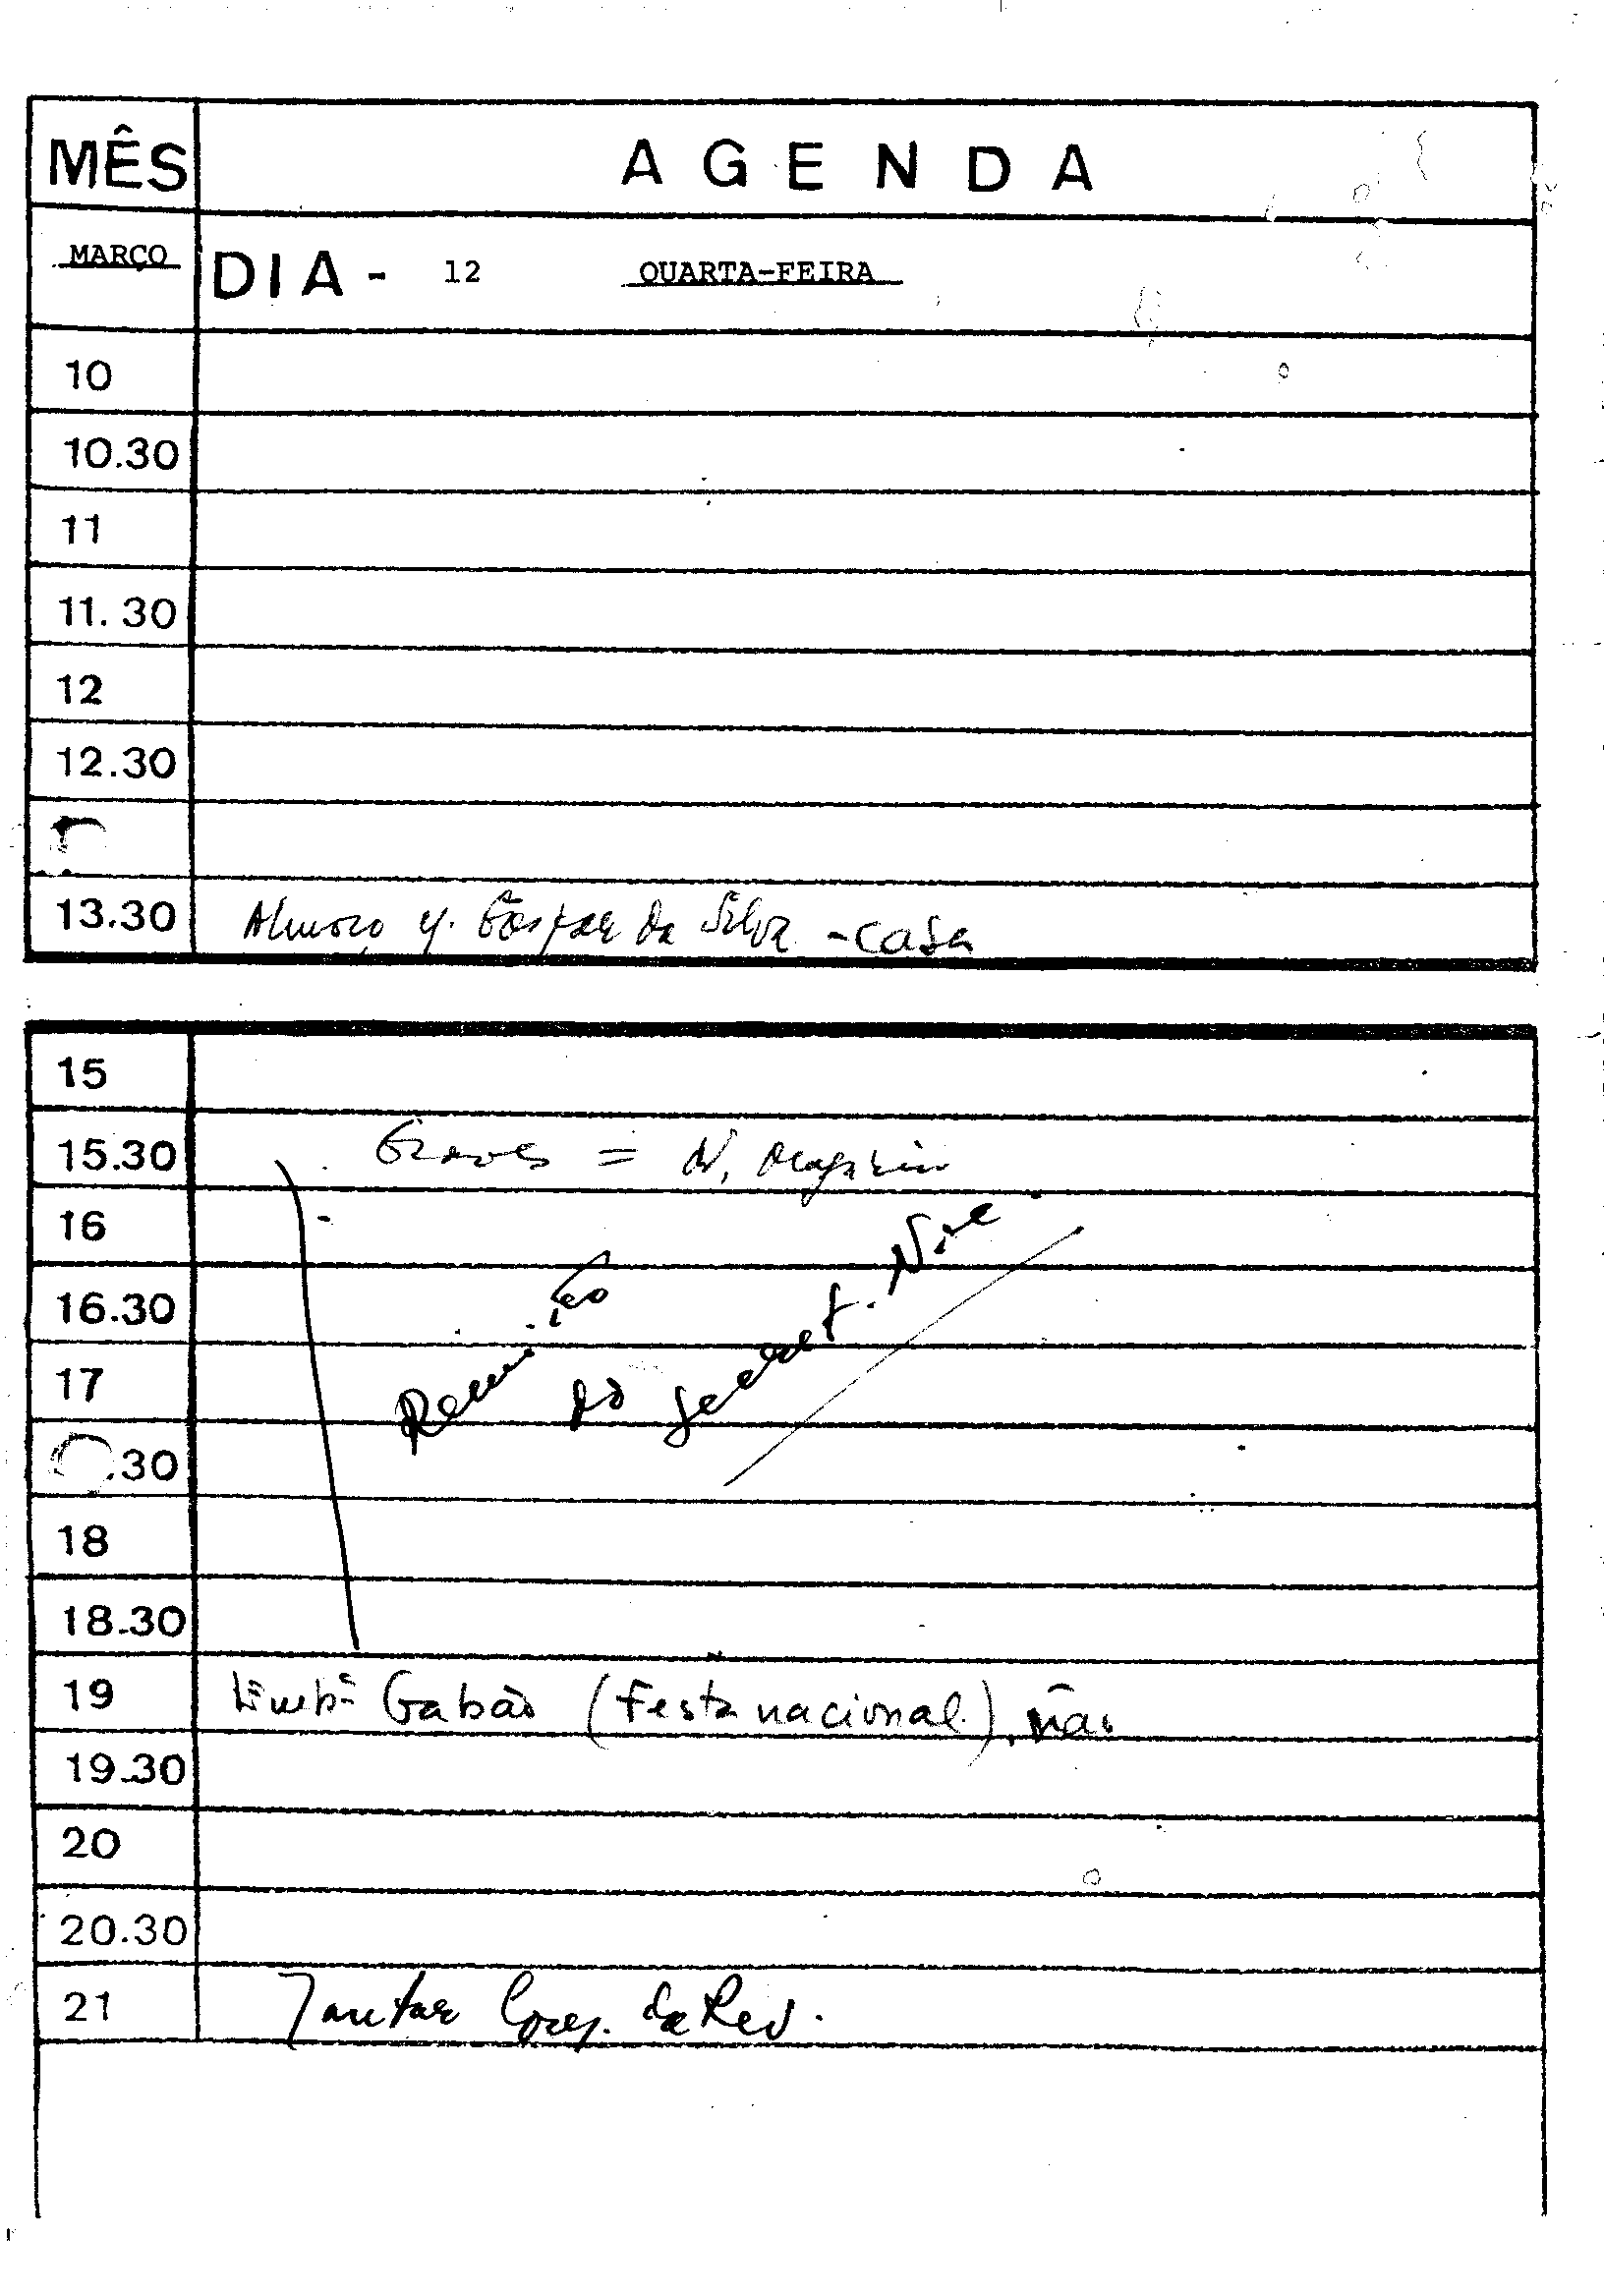 MÊS AGENDA
MARÇO DIA - 12 QUARTA-FEIRA
10
10.30
11
11.30
12
12.30
13.30 Almoço Gaspar da Silva - casa
15
15.30
16
16.30
17 Reunião do
.30
18
18.30
19 Embª Gabão (festa nacional), não
19.30
20
20.30
21 Jantar da Rev.